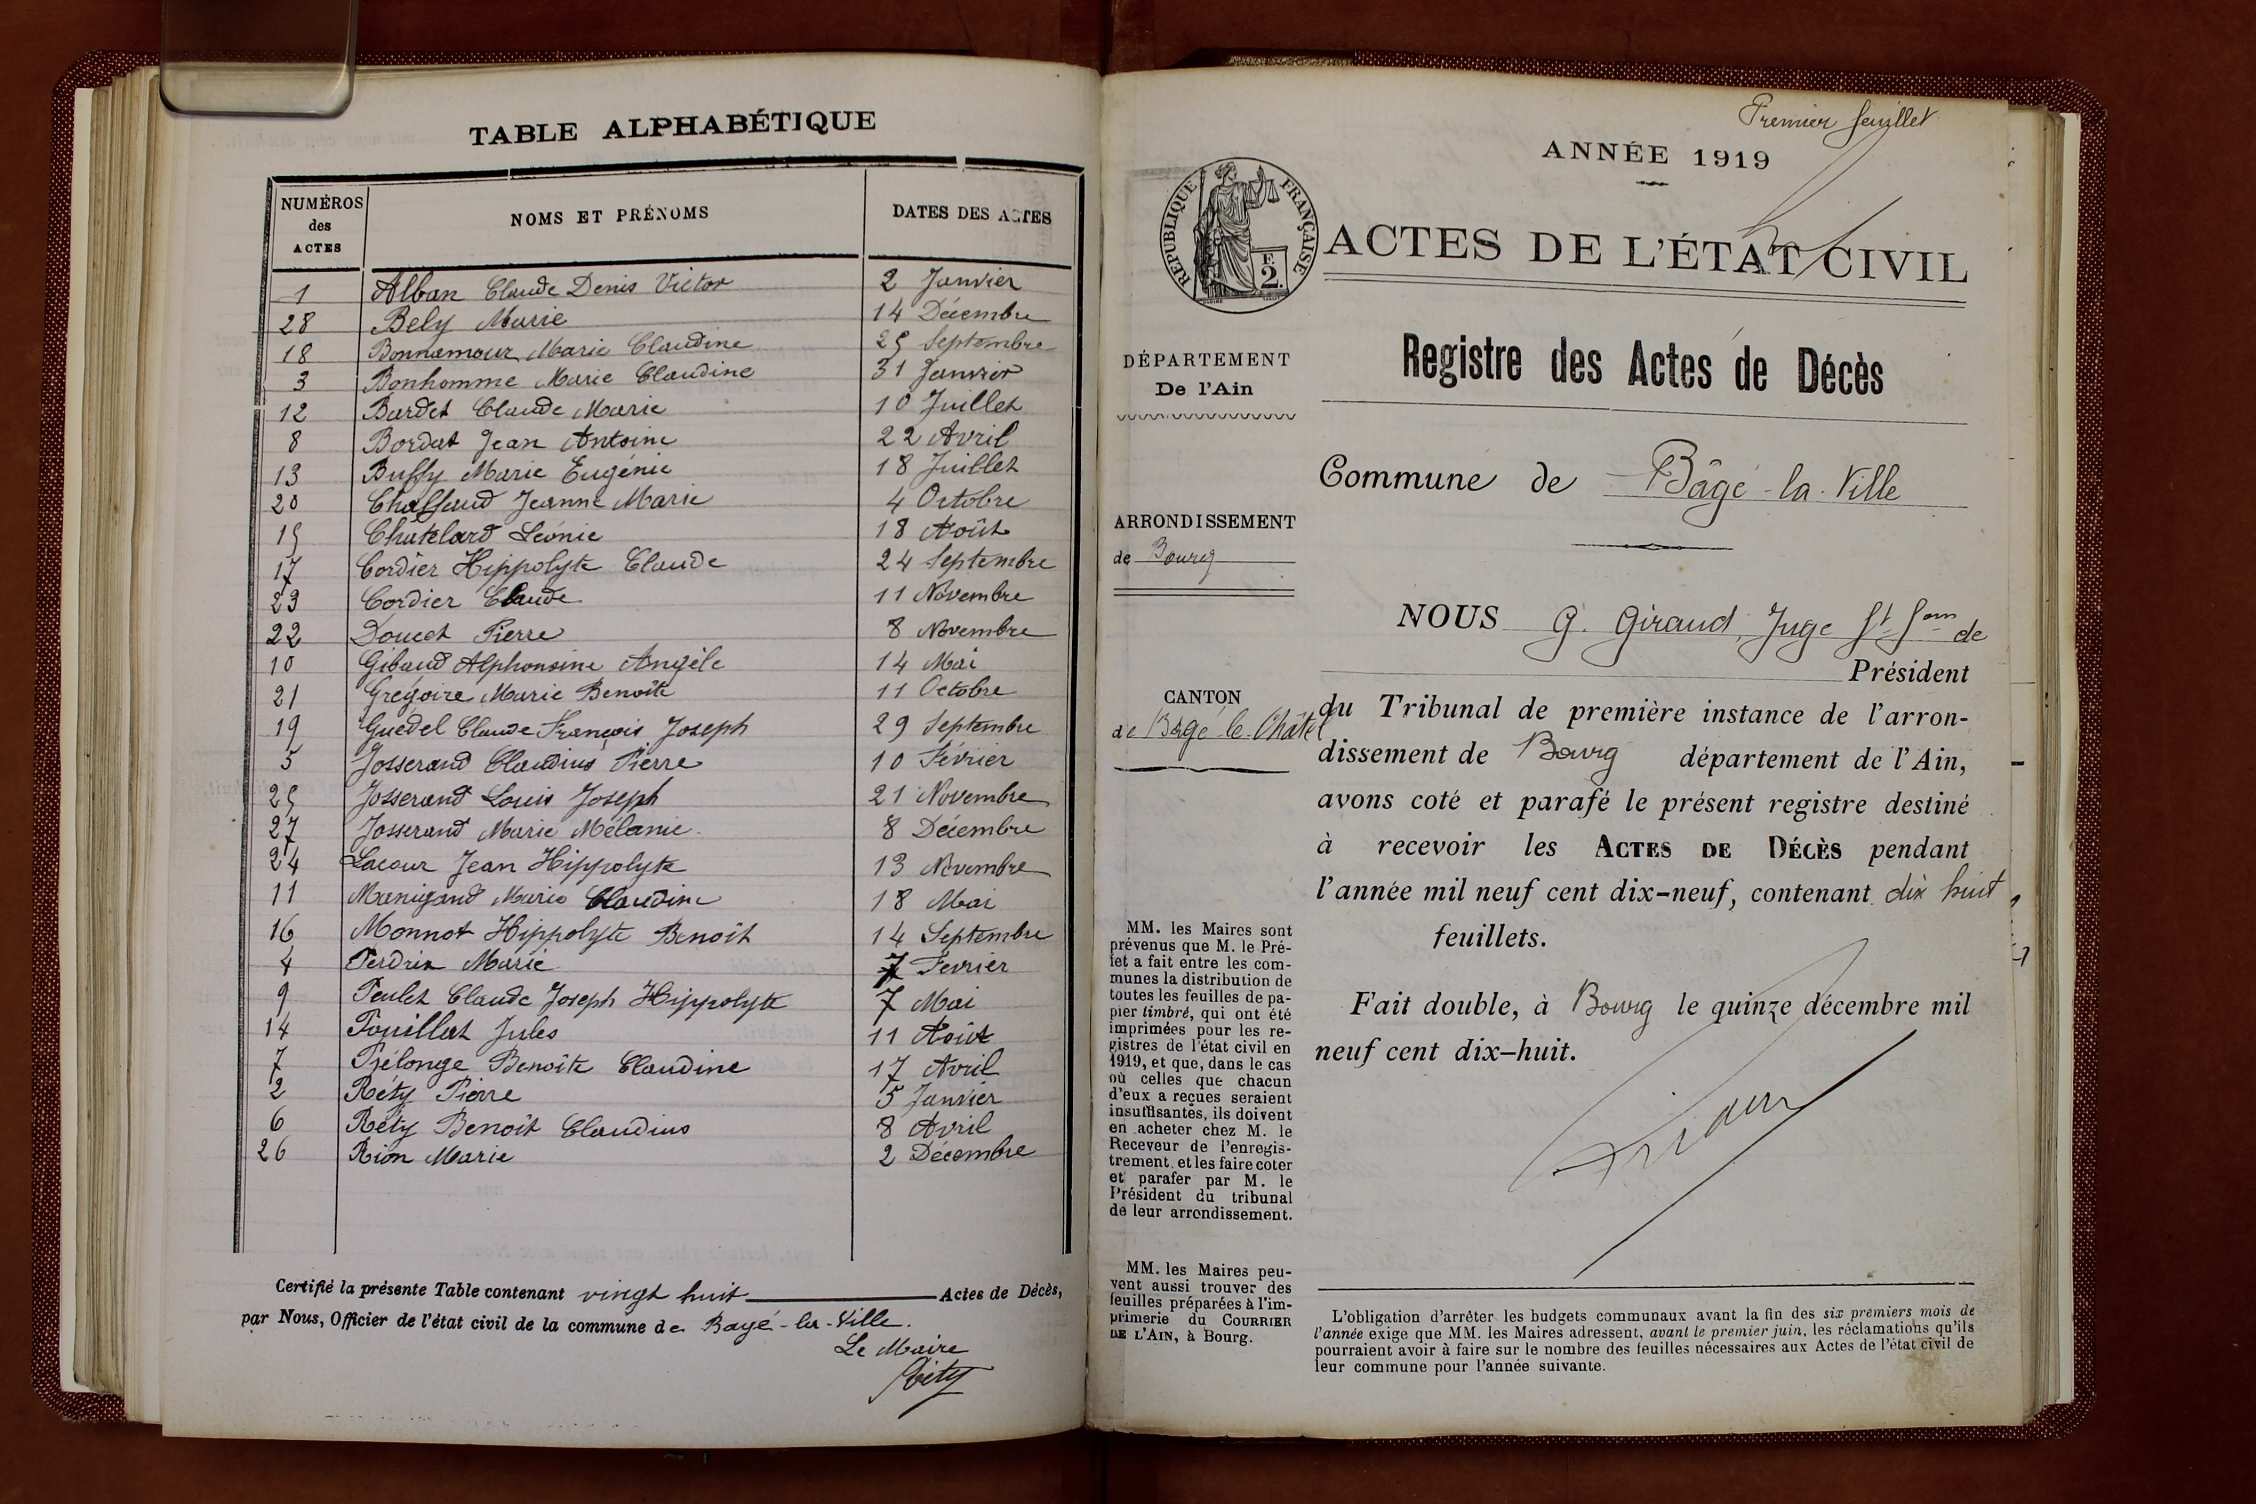 TABLE ALPHABÉTIQUE
NUMÉROS des ACTES NOMS ET PRÉNOMS DATES DES ACTES
1 Alban Claude Denis Victor 2 Janvier
28 Bely Marie 14 Décembre
18 Bonnamour Marie Claudine 25 Septembre
3 Bonhomme Marie Claudine 31 Janvier
12 Bardet Claude Marie 10 Juillet
8 Bordat Jean Antoine 22 Avril
13 Buffy Marie Eugénie 18 Juillet
20 Chaffaud Jeanne Marie 4 Octobre
15 Chatelard Léonie 18 Août
17 Cordier Hippolyte Claude 24 Septembre
23 Cordier Claude 11 Novembre
22 Doucet Pierre 8 Novembre
10 Gibaud Alphonsine Angèle 14 Mai
21 Grégoire Marie Benoîte 11 Octobre
19 Guédel Claude François Joseph 29 Septembre
5 Josserand Claudius Pierre 10 Février
25 Josserand Louis Joseph 21 Novembre
27 Josserand Marie Mélanie 8 Décembre
24 Lacour Jean Hippolyte 13 Novembre
11 Manigand Marie Claudine 18 Mai
16 Monnot Hippolyte Benoît 14 Septembre
4 Perdrix Marie 7 Fevrier
9 Peulet Claude Joseph Hippolyte 7 Mai
14 Pouillat Jules 11 Août
7 Prélonge Benoîte Claudine 17 Avril
2 Réty Pierre 5 Janvier
6 Réty Benoît Claudius 8 Avril
26 Rion Marie 2 Décembre
Certifié la présente Table contenant vingt huit Actes de Décès,
par Nous, Officier de l'état civil de la commune de Bagé-la-Ville.
Le Maire
Réty
Premier feuillet
ANNÉE 1919
RÉPUBLIQUE FRANÇAISE
F.
2.
ACTES DE L'ÉTAT CIVIL
DÉPARTEMENT
De l'Ain
Registre des Actes de Décès
Commune de Bâgé-la-Ville
ARRONDISSEMENT
de Bourg
NOUS G. Giraud, Juge de
Président
CANTON
de Bagé-le-Châtel
du Tribunal de première instance de l'arron-
dissement de Bourg département de l'Ain,
avons coté et parafé le présent registre destiné
à recevoir les ACTES DE DÉCÈS pendant
l'année mil neuf cent dix-neuf, contenant dix huit
feuillets.
Fait double, à Bourg le quinze décembre mil
neuf cent dix-huit.
Giraud
MM. les Maires sont
prévenus que M. le Pré-
fet a fait entre les com-
munes la distribution de
toutes les feuilles de pa-
pier timbré, qui ont été
imprimées pour les re-
gistres de l'état civil en
1919, et que, dans le cas
où celles que chacun
d'eux a reçues seraient
insuffisantes, ils doivent
en acheter chez M. le
Receveur de l'enregis-
trement et les faire coter
et parafer par M. le
Président du tribunal
de leur arrondissement.
MM. les Maires peu-
vent aussi trouver des
feuilles préparées à l'im-
primerie du COURRIER
DE L'AIN, à Bourg.
L'obligation d'arrêter les budgets communaux avant la fin des six premiers mois de
l'année exige que MM. les Maires adressent, avant le premier juin, les réclamations qu'ils
pourraient avoir à faire sur le nombre des feuilles nécessaires aux Actes de l'état civil de
leur commune pour l'année suivante.